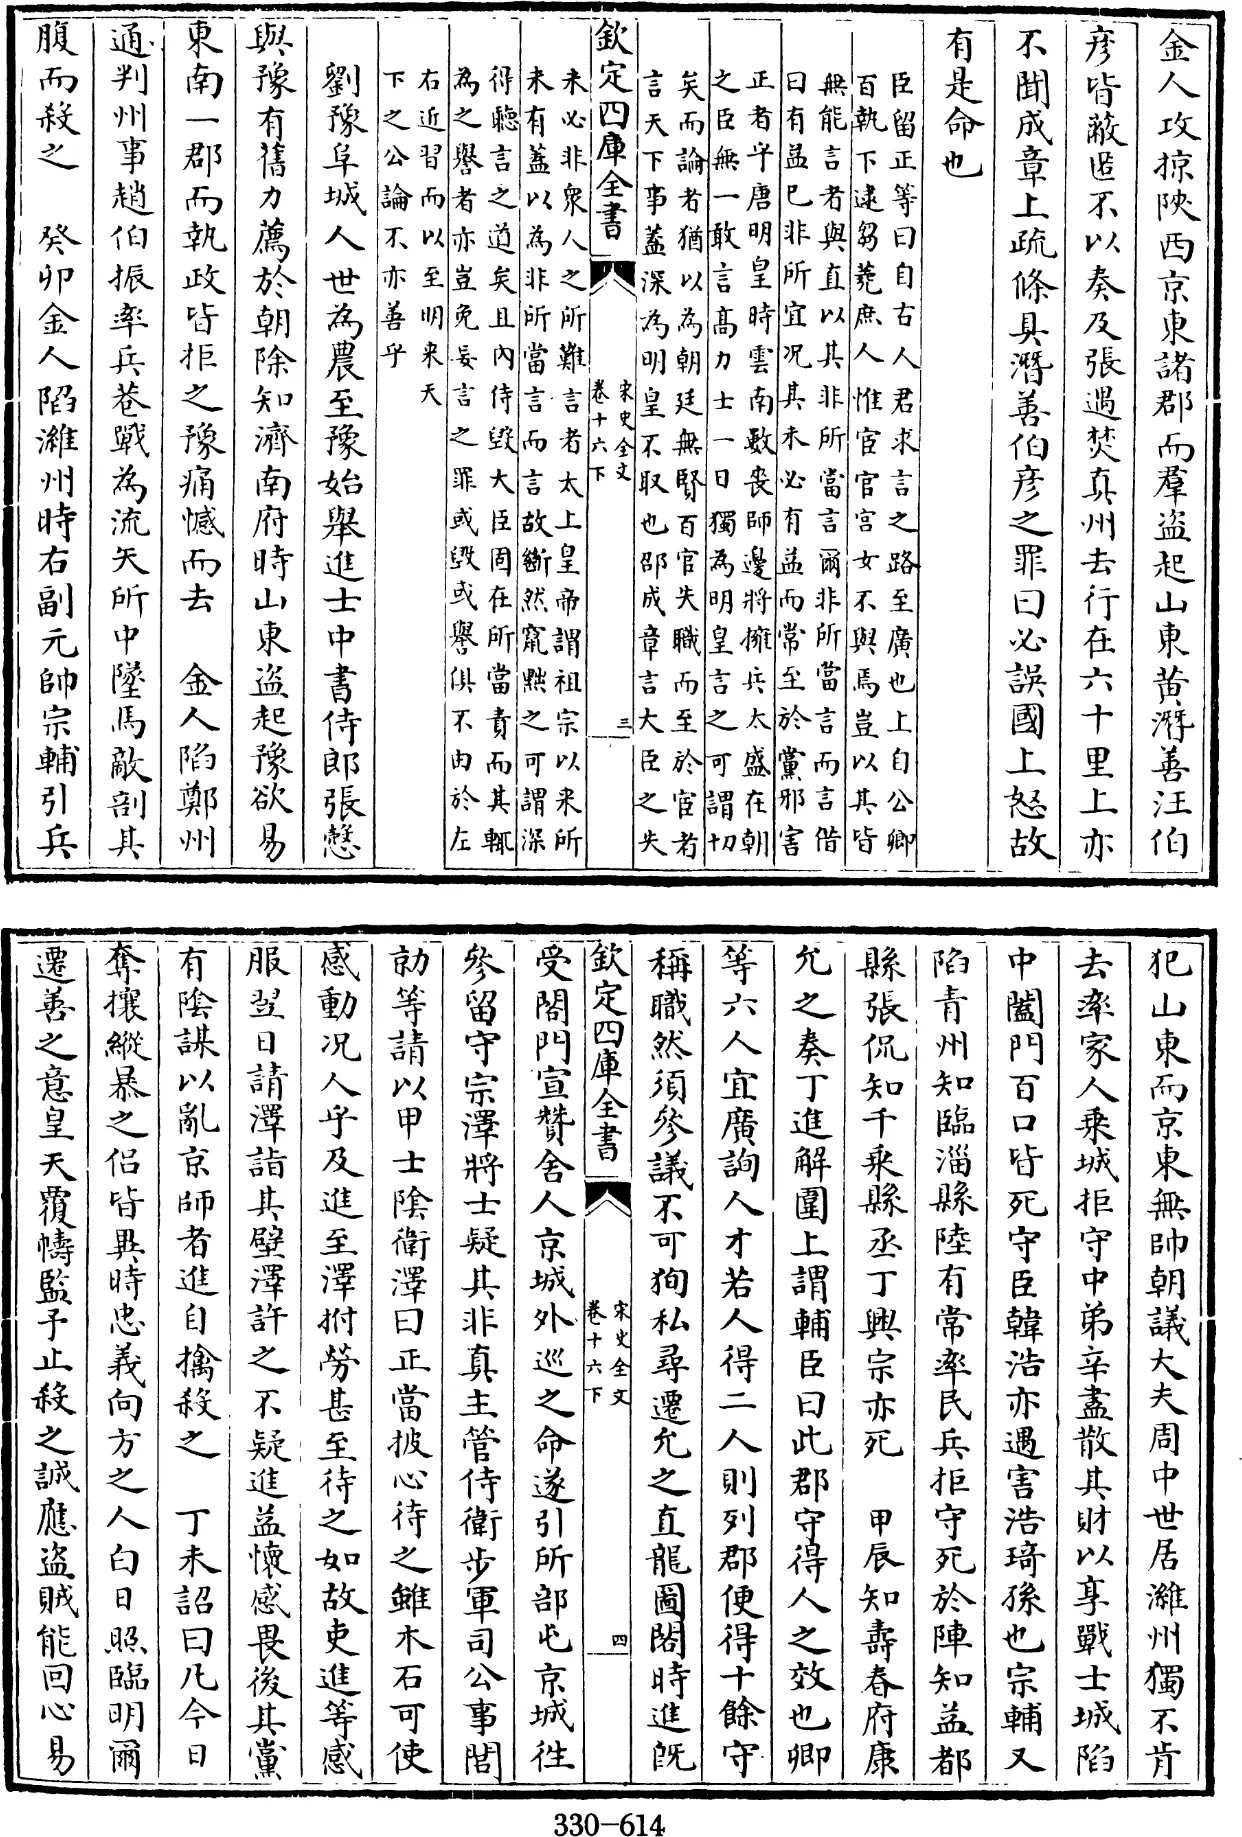 金人攻掠陜西京東諸郡而羣盗起山東黄潛善汪伯
彦皆蔽匿不以奏及張遇焚真州去行在六十里上亦
不聞成章上疏條具潛善伯彦之罪曰必誤國上怒故
有是命也
臣留正等曰自古人君求言之路至廣也上自公卿
百執下逮芻蕘庶人惟宦官宫女不與焉豈以其皆
無能言者與直以其非所當言爾非所當言而言借
曰有益已非所宜况其未必有益而常至於黨邪害
正者乎唐明皇時雲南數喪師邊將擁兵太盛在朝
之臣無一敢言髙力士一日獨為明皇言之可謂切
矣而論者猶以為朝廷無賢百官失職而至於宦者
言天下事蓋深為明皇不取也邵成章言大臣之失
欽定四庫全書
宋史全文
卷十六下
三
未必非衆人之所難言者太上皇帝謂祖宗以来所
未有蓋以為非所當言而言故斷然竄黜之可謂深
得聽言之道矣且内侍毀大臣固在所當責而其輒
為之譽者亦豈免妄言之罪或毀或譽俱不由於左
右近習而以至明来天
下之公論不亦善乎
劉豫阜城人世為農至豫始舉進士中書侍郎張慤
與豫有舊力薦於朝除知濟南府時山東盗起豫欲易
東南一郡而執政皆拒之豫痛憾而去 金人陷鄭州
通判州事趙伯振率兵巷戰為流矢所中墜馬敵剖其
腹而殺之 癸卯金人陷濰州時右副元帥宗輔引兵
犯山東而京東無帥朝議大夫周中世居濰州獨不肯
去率家人乗城拒守中弟辛盡散其財以享戰士城陷
中闔門百口皆死守臣韓浩亦遇害浩琦孫也宗輔又
陷青州知臨淄縣陸有常率民兵拒守死於陣知益都
縣張侃知千乗縣丞丁興宗亦死 甲辰知壽春府康
允之奏丁進解圍上謂輔臣曰此郡守得人之效也卿
等六人宜廣詢人才若人得二人則列郡便得十餘守
稱職然須參議不可狥私尋遷允之直龍圖閣時進既
欽定四庫全書
宋史全文
卷十六下
四
受閤門宣贊舍人京城外巡之命遂引所部屯京城徃
參留守宗澤將士疑其非真主管侍衛步軍司公事閭
勍等請以甲士陰衛澤曰正當披心待之雖木石可使
感動况人乎及進至澤拊勞甚至待之如故吏進等感
服翌日請澤詣其壁澤許之不疑進益懷感畏後其黨
有陰謀以亂京師者進自擒殺之 丁未詔曰凡今日
奪攘縱暴之侣皆異時忠義向方之人白日照臨明爾
遷善之意皇天覆幬監予止殺之誠應盗賊能回心易
330-614